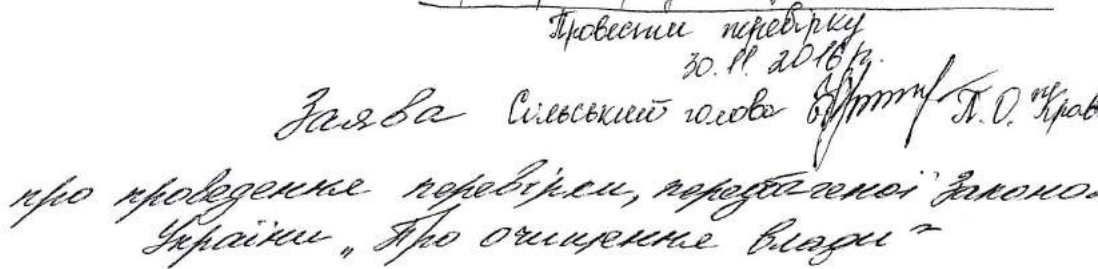 Провести перевірку
30.11.2016 р.
Заява Сільський голова П.О. Крав
про проведення перевірки, передбаченої Законо
України „Про очищення влади"